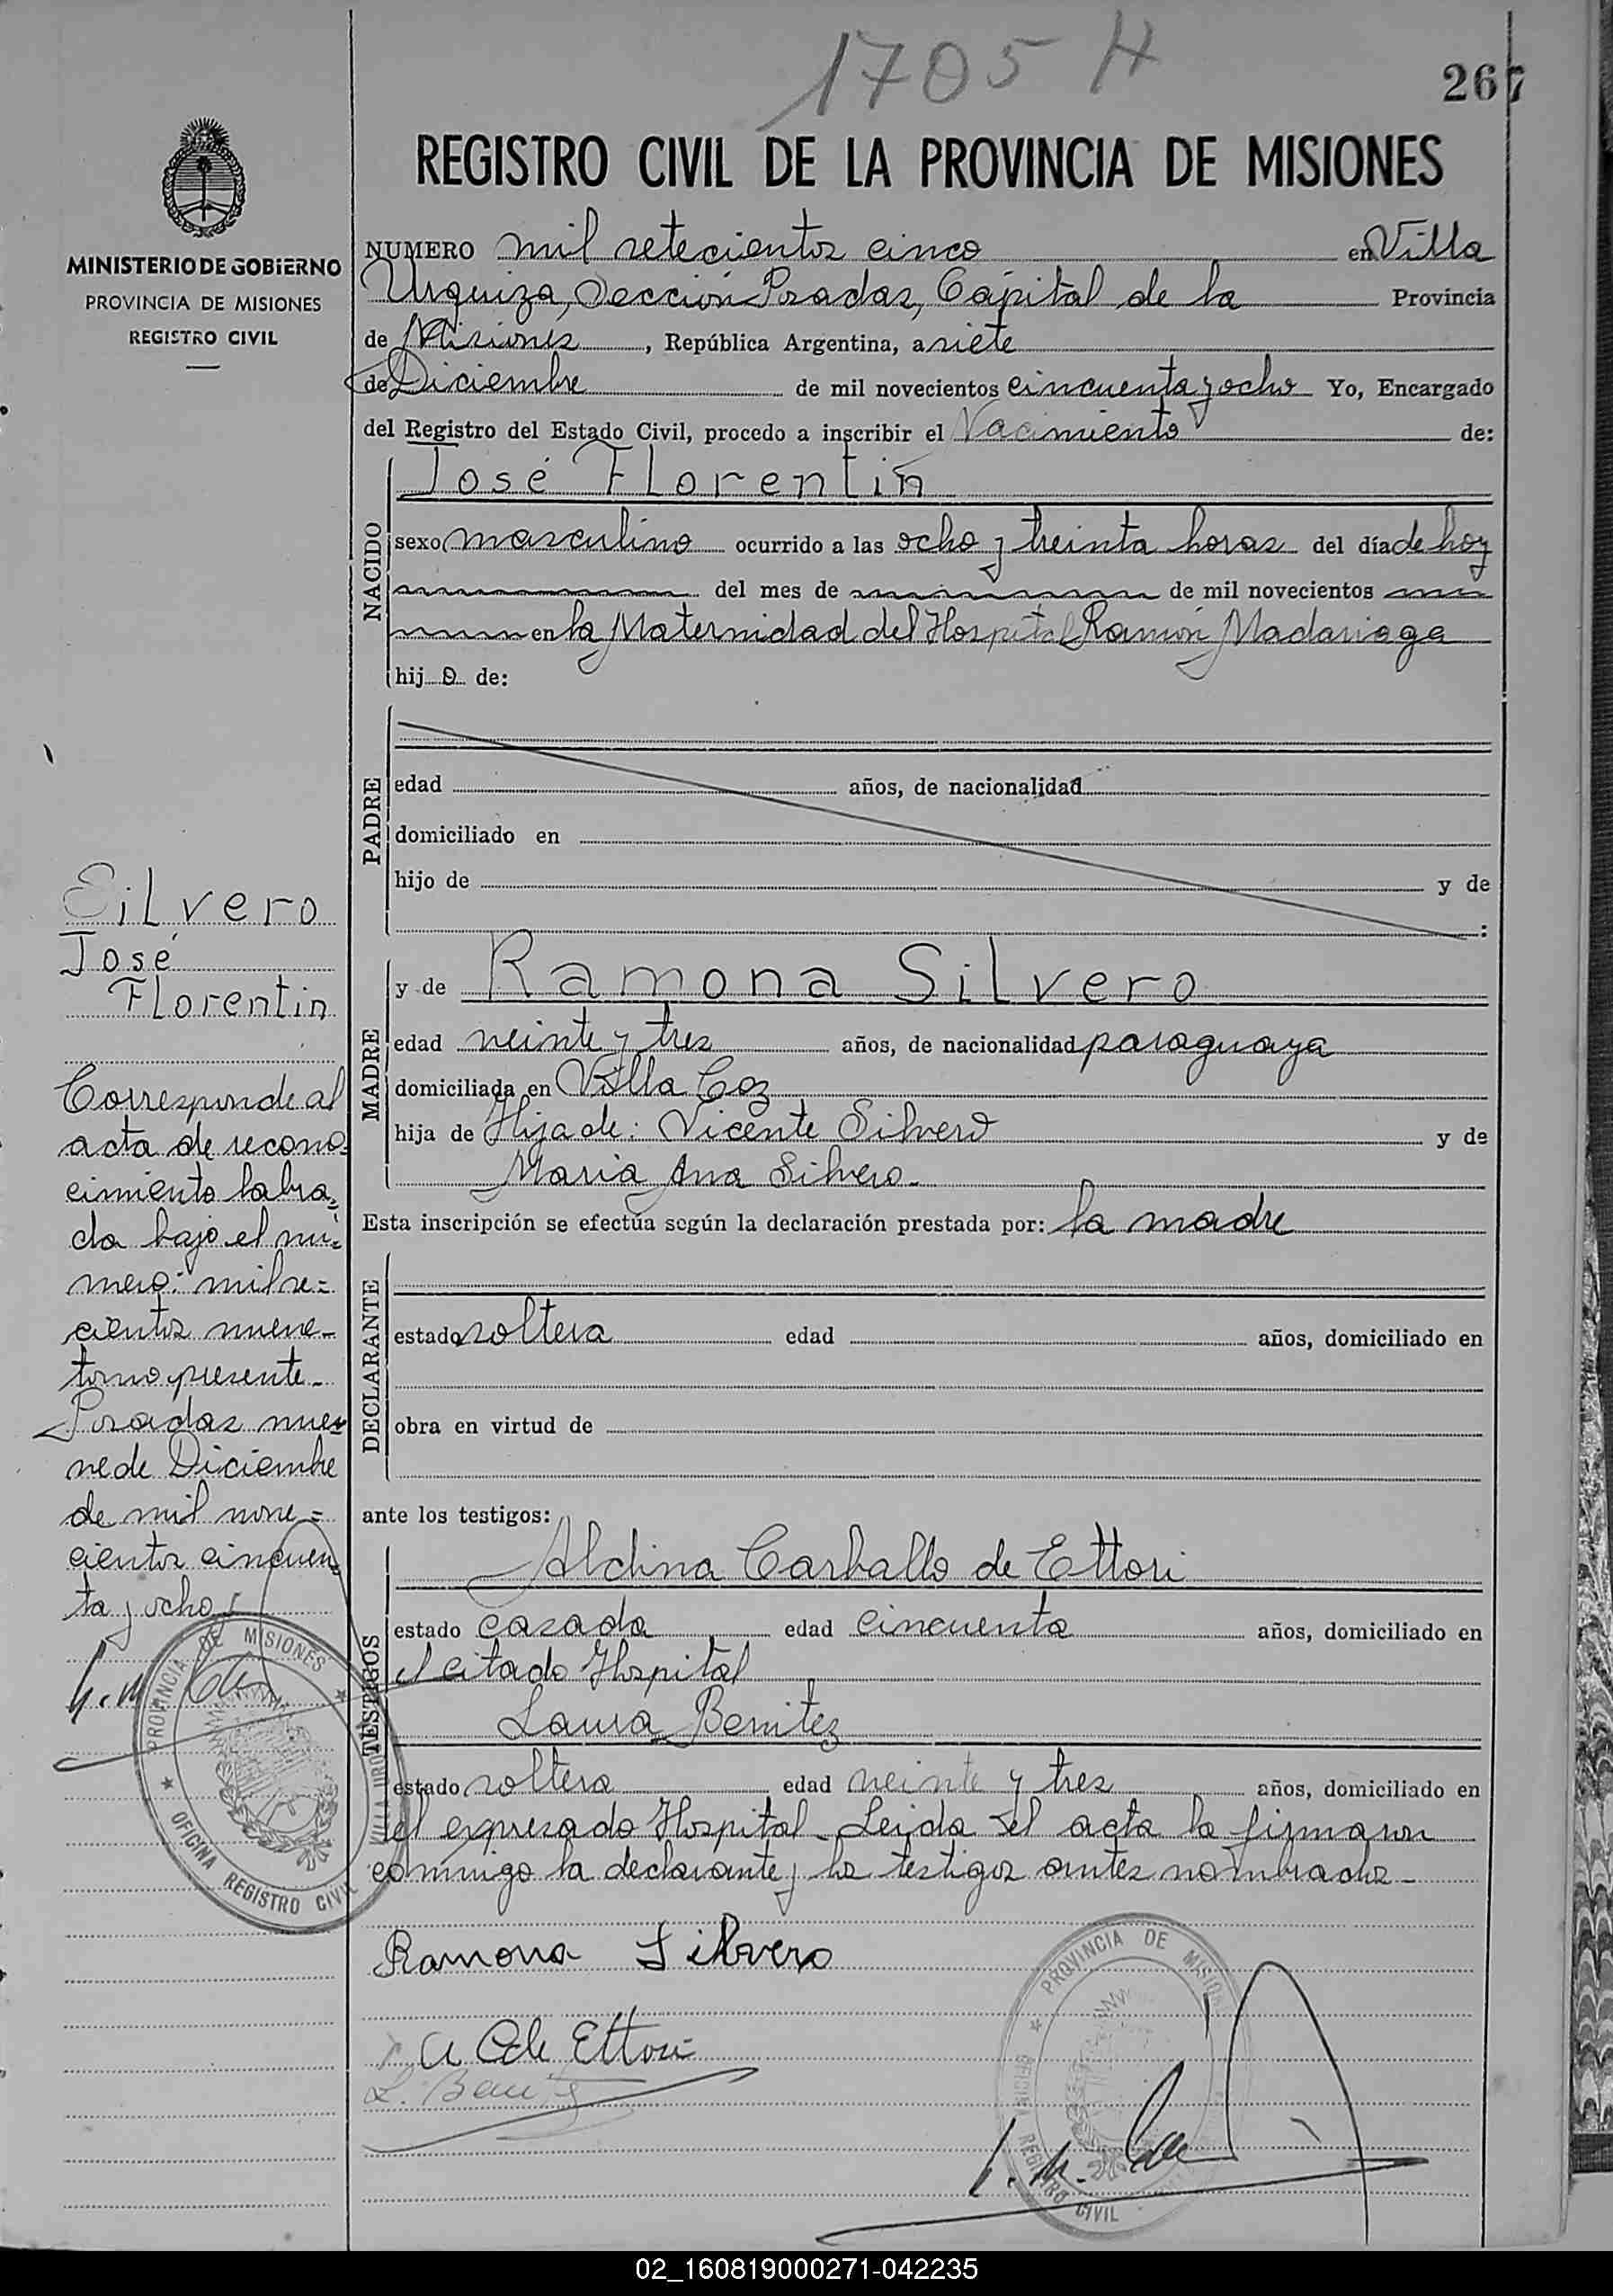 1705 H
267
REGISTRO CIVIL DE LA PROVINCIA DE MISIONES
MINISTERIO DE GOBIERNO
PROVINCIA DE MISIONES
REGISTRO CIVIL
NUMERO mil setecientos cinco en Villa
Urquiza, Sección Posadas, Capital de la Provincia
de Misiones, República Argentina, a siete
de Diciembre de mil novecientos cincuenta y ocho Yo, Encargado
del Registro del Estado Civil, procedo a inscribir el Nacimiento de:
NACIDO
José Florentin
sexo masculino ocurrido a las ocho y treinta horas del día de hoy
del mes de de mil novecientos
en la Maternidad del Hospital Ramón Madariaga
hij o de:
PADRE
edad años, de nacionalidad
domiciliado en
hijo de y de
:
MADRE
y de Ramona Silvero
edad veinte y tres años, de nacionalidad paraguaya
domiciliada en Villa Coz
hija de Hija de: Vicente Silvero y de
Maria Ana Silvero.
Esta inscripción se efectúa según la declaración prestada por: la madre
DECLARANTE
estado soltera edad años, domiciliado en
obra en virtud de
ante los testigos:
TESTIGOS
Aldina Carballo de Ettori
estado casada edad cincuenta años, domiciliado en
el citado Hospital
Laura Benitez
estado soltera edad veinte y tres años, domiciliado en
el expresado Hospital. Leida el acta la firmaron
conmigo la declarante y los testigos antes nombrados.
Ramona Silvero
A C de Ettori
L. Benitez
Silvero
José
Florentin
Corresponde al
acta de recono=
cimiento labra=
da bajo el nú=
mero: mil se=
cientos nueve-
tomo presente.
Posadas nue=
ve de Diciembre
de mil nove=
cientos cincuen=
ta y ocho
PROVINCIA DE MISIONES
OFICINA REGISTRO CIVIL
VILLA URQ
PROVINCIA DE MISIONES
OFICINA REGISTRO CIVIL
02_160819000271-042235